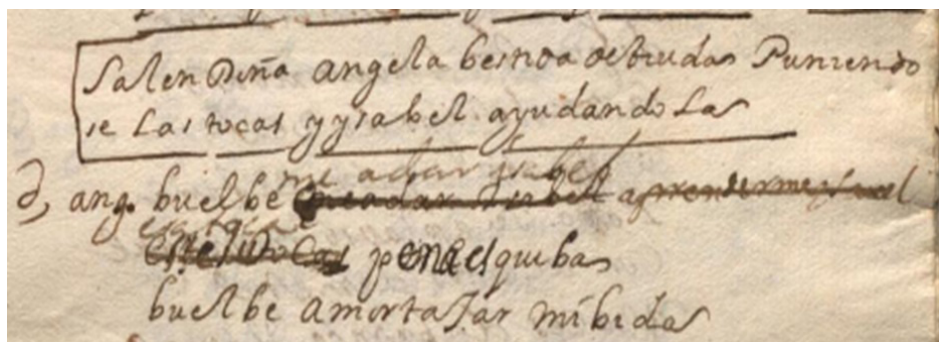 Salen Doña angela bestida de biudas Puniendo
se Las tocas y ysabel ayudandoLas
me a dar ysabel
d, ang. buelbe
pena esquibas
buelbe amortaJar mi bidas